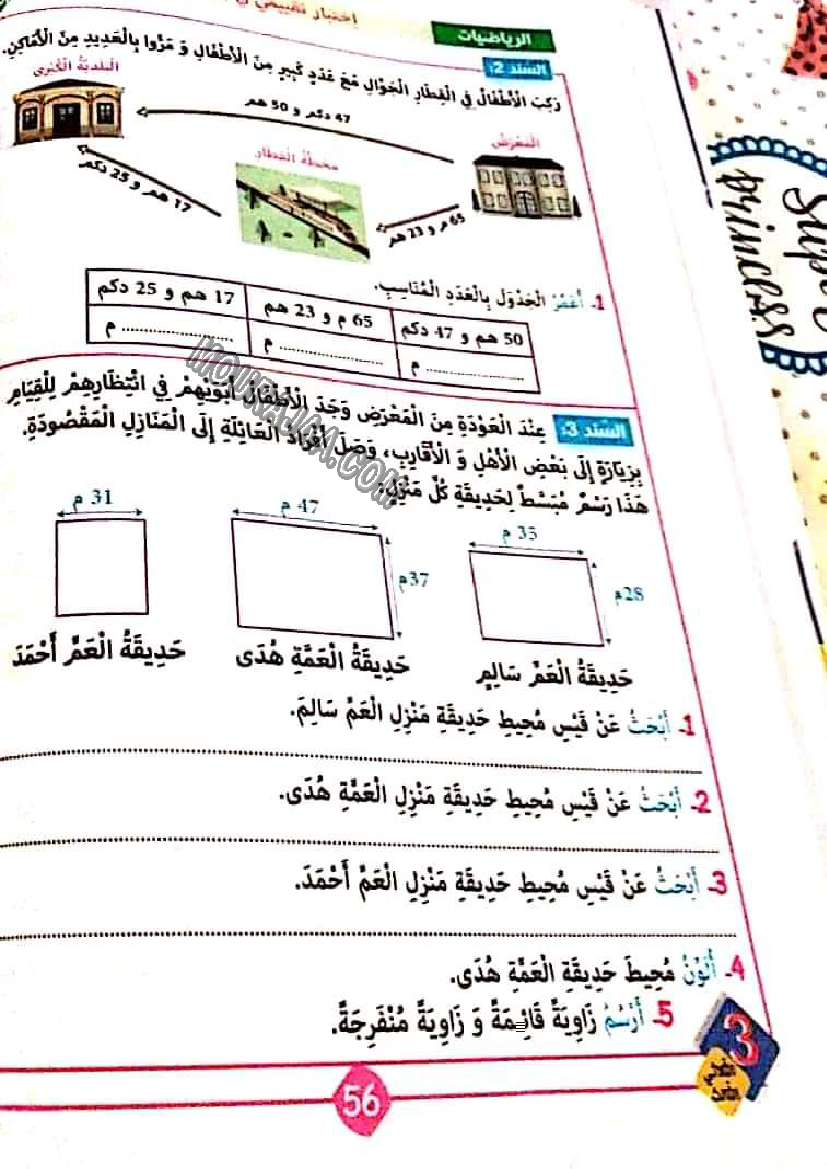 الرياضيات
السند 2:
رَكِبَ الْأَطْفَالُ فِي الْقِطَارِ الْجَوَّالِ مَعَ عَدَدٍ كَبِيرٍ مِنَ الْأَطْفَالِ وَ مَرُّوا بِالْعَدِيدِ مِنَ الْأَمَاكِنِ.
الْبَلَدِيَّةُ الْكُبْرَى
47 دكم و 50 هم
الْمَعْرَضُ
مَحَطَّةُ الْقِطَارِ
17 هم و 25 دكم
65 م و 23 هم
1. أُعَمِّرُ الْجَدْوَلَ بِالْعَدَدِ الْمُنَاسِبِ.
50 هم و 47 دكم
65 م و 23 هم
17 هم و 25 دكم
.................... م
.................... م
.................... م
MOURAJAA.COM
السند 3: عِنْدَ الْعَوْدَةِ مِنَ الْمَعْرَضِ وَجَدَ الْأَطْفَالُ أَبَوَيْهِمْ فِي انْتِظَارِهِمْ لِلْقِيَامِ
بِزِيَارَةٍ إِلَى بَعْضِ الْأَهْلِ وَ الْأَقَارِبِ، وَصَلَ أَفْرَادُ الْعَائِلَةِ إِلَى الْمَنَازِلِ الْمَقْصُودَةِ.
هَذَا رَسْمٌ مُبَسَّطٌ لِحَدِيقَةِ كُلِّ مَنْزِلٍ:
35 م
47 م
31 م
28م
37م
حَدِيقَةُ الْعَمِّ سَالِمٍ
حَدِيقَةُ الْعَمَّةِ هُدَى
حَدِيقَةُ الْعَمِّ أَحْمَدَ
1- أَبْحَثُ عَنْ قَيْسِ مُحِيطِ حَدِيقَةِ مَنْزِلِ الْعَمِّ سَالِمَ.
2- أَبْحَثُ عَنْ قَيْسِ مُحِيطِ حَدِيقَةِ مَنْزِلِ الْعَمَّةِ هُدَى.
3- أَبْحَثُ عَنْ قَيْسِ مُحِيطِ حَدِيقَةِ مَنْزِلِ الْعَمِّ أَحْمَدَ.
4- أُلَوِّنُ مُحِيطَ حَدِيقَةِ الْعَمَّةِ هُدَى.
5- أَرْسُمُ زَاوِيَةً قَائِمَةً وَ زَاوِيَةً مُنْفَرِجَةً.
3
56
princess